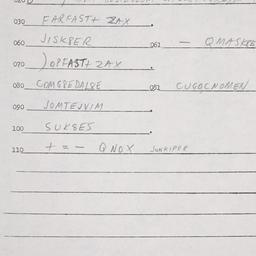 030 FARFAST+ ZAX
060 JISKPER 061 — QMASKRE
070 JOPFAST+ ZAX
080 COMGPEDALSE 081 CUGOCNOMEN
090 JOMTEJVIM
100 SUKSES
110 + = - QNOX JUNKIPER